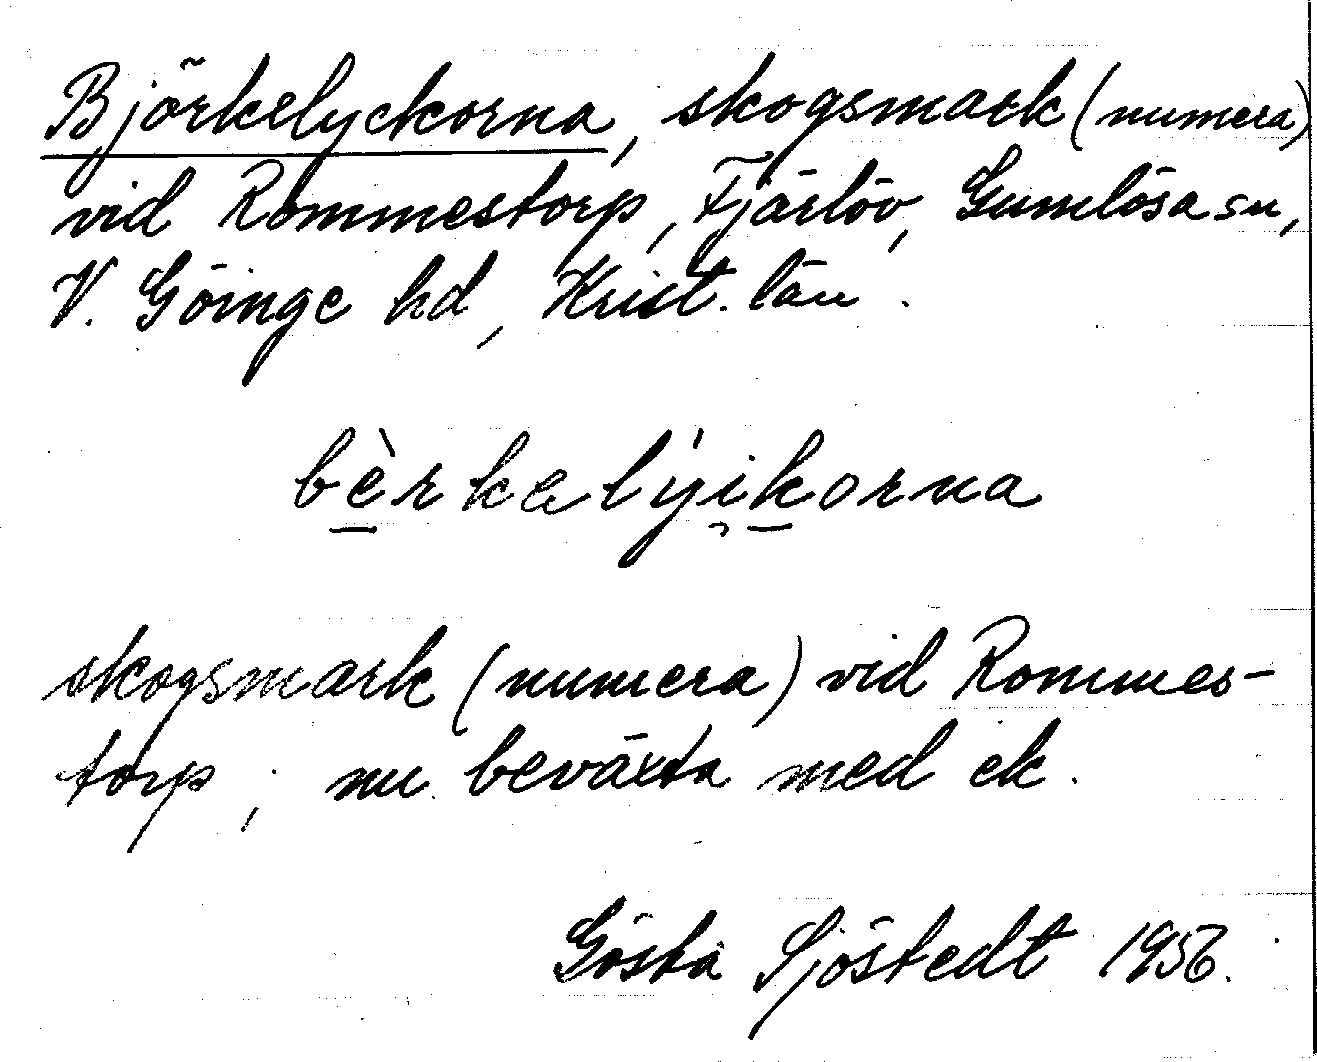 Björkelyckorna, skogsmark (numera)
vid Rommestorp, Fjärlöv, Gumlösa sn,
V. Göinge hd, Krist. län.
bèrkelýi̯korna
skogsmark (numera) vid Rommes-
torp; nu beväxta med ek.
Gösta Sjöstedt 1956.